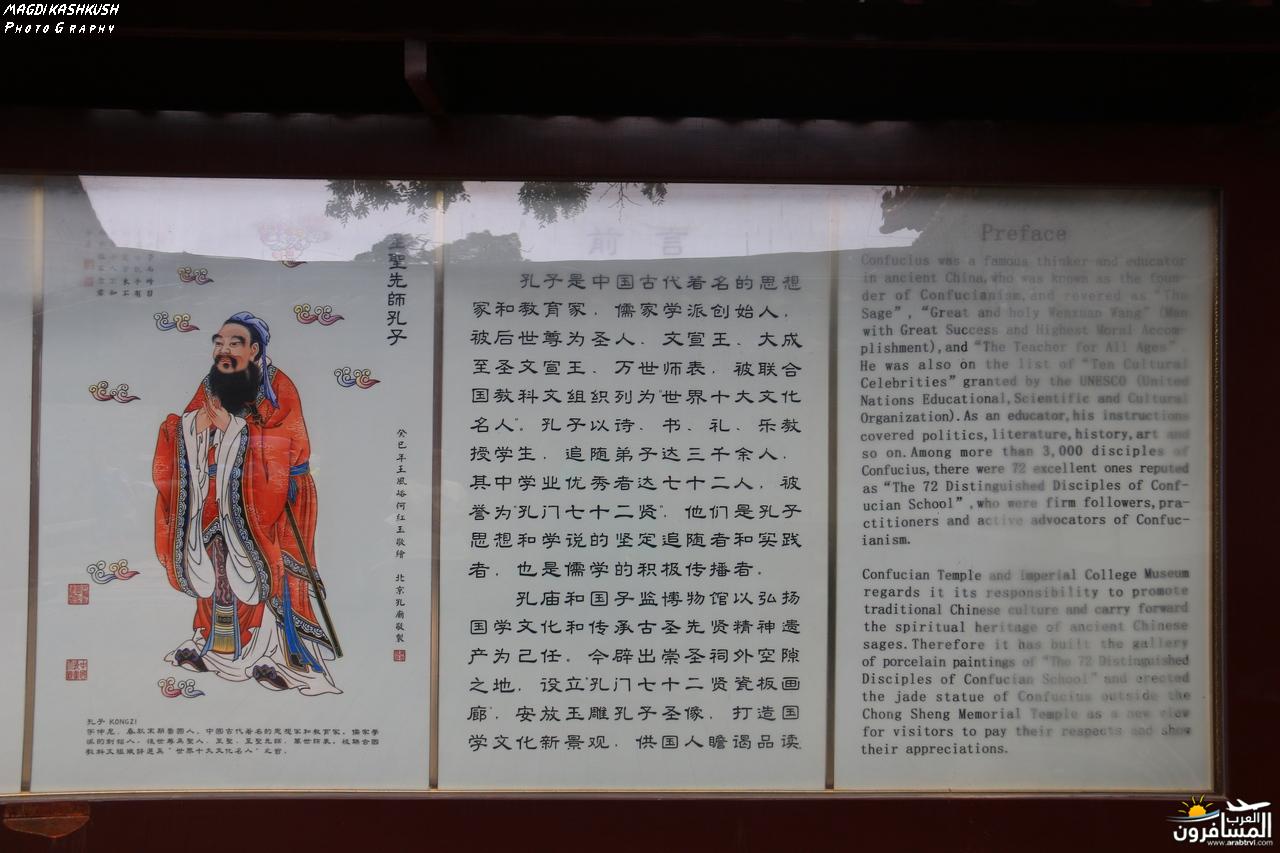 MAGDI KASHKUSH
PHOTOGRAPHY
至聖先師孔子
癸巳年王風塔何紅玉敬繪 北京孔廟敬製
孔子 KONGZI
前言
孔子是中国古代著名的思想
家和教育家，儒家学派创始人，
被后世尊为圣人、文宣王、大成
至圣文宣王、万世师表，被联合
国教科文组织列为“世界十大文化
名人”。孔子以诗、书、礼、乐教
授学生，追随弟子达三千余人，
其中学业优秀者达七十二人，被
誉为“孔门七十二贤”。他们是孔子
思想和学说的坚定追随者和实践
者，也是儒学的积极传播者。
孔庙和国子监博物馆以弘扬
国学文化和传承古圣先贤精神遗
产为己任。今辟出崇圣祠外空隙
之地，设立“孔门七十二贤瓷板画
廊”，安放玉雕孔子圣像，打造国
学文化新景观，供国人瞻谒品读。
Preface
Confucius was a famous thinker and educator
in ancient China, who was known as the foun-
der of Confucianism, and revered as “The
Sage”, “Great and holy Wenxuan Wang” (Man
with Great Success and Highest Moral Accom-
plishment), and “The Teacher for All Ages”.
He was also on the list of “Ten Cultural
Celebrities” granted by the UNESCO (United
Nations Educational, Scientific and Cultural
Organization). As an educator, his instructions
covered politics, literature, history, art and
so on. Among more than 3,000 disciples of
Confucius, there were 72 excellent ones reputed
as “The 72 Distinguished Disciples of Conf-
ucian School”, who were firm followers, pra-
ctitioners and active advocators of Confuc-
ianism.
Confucian Temple and Imperial College Museum
regards it its responsibility to promote
traditional Chinese culture and carry forward
the spiritual heritage of ancient Chinese
sages. Therefore it has built the gallery
of porcelain paintings of “The 72 Distinguished
Disciples of Confucian School” and erected
the jade statue of Confucius outside the
Chong Sheng Memorial Temple as a new view
for visitors to pay their respects and show
their appreciations.
العرب
المسافرون
www.arabtrvl.com